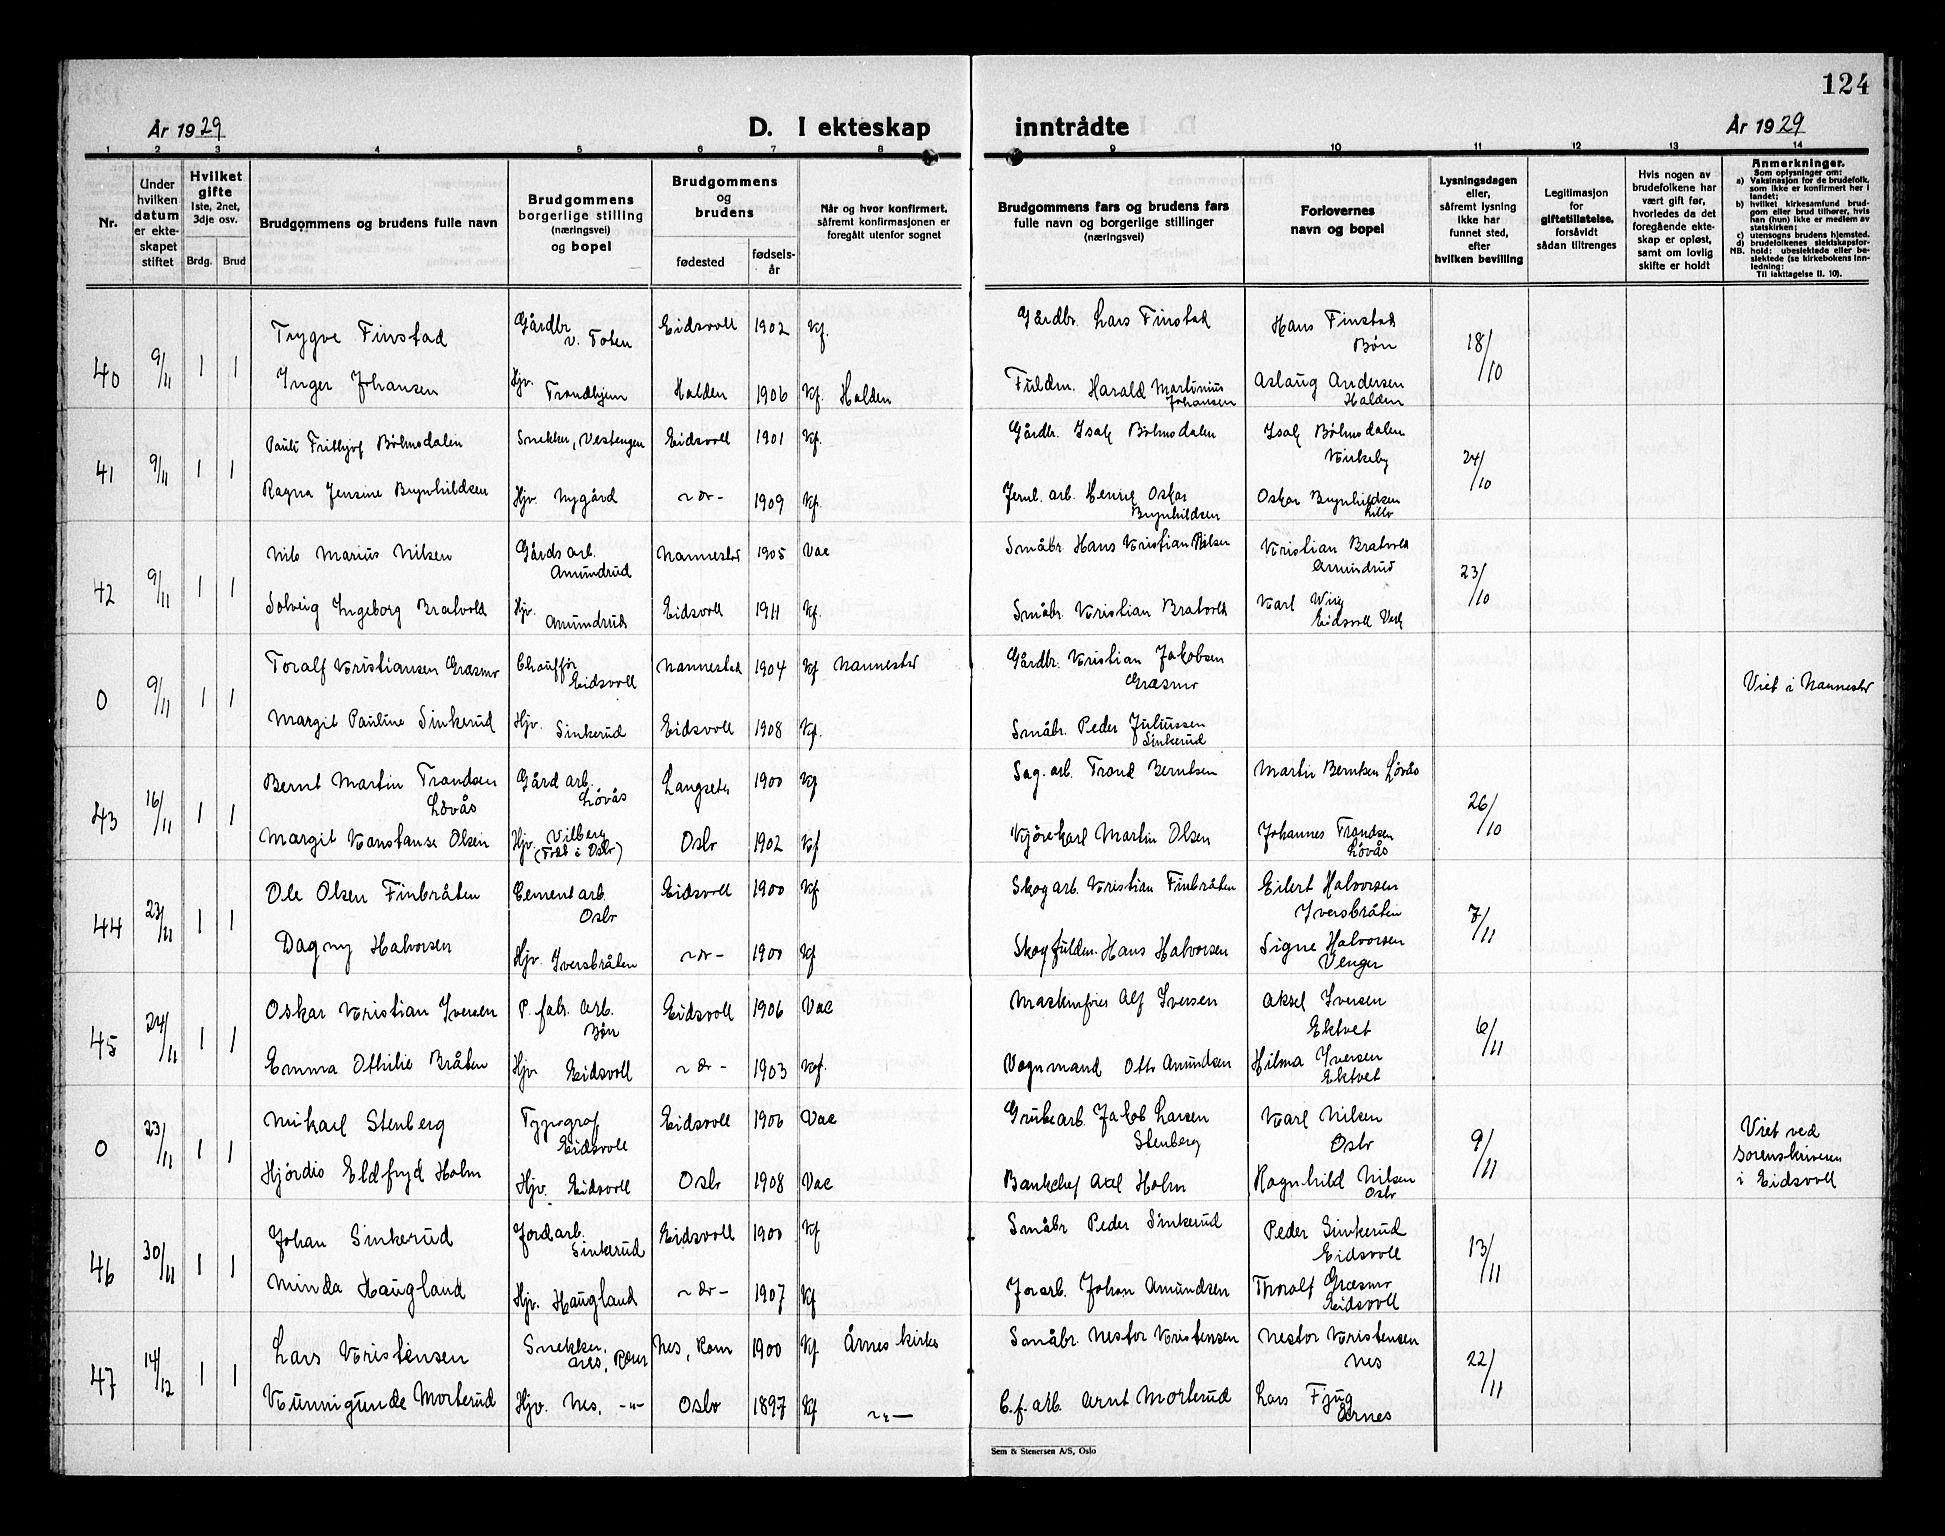 124
År 1929
D. I ekteskap inntrådte
År 1929
1 2 3 4 5 6 7 8 9 10 11 12 13 14
Nr.
Under hvilken datum er ekteskapet stiftet
Hvilket gifte 1ste, 2net, 3dje osv.
Brdg. Brud
Brudgommens og brudens fulle navn
Brudgommens borgerlige stilling (næringsvei) og bopel
Brudgommens og brudens
fødested
fødselsår
Når og hvor konfirmert, såfremt konfirmasjonen er foregålt utenfor sognet
Brudgommens fars og brudens fars fulle navn og borgerlige stillinger (næringsvei)
Forlovernes navn og bopel
Lysningsdagen eller, såfremt lysning ikke har funnet sted, efter hvilken bevilling
Legitimasjon for giftetillatelse, forsåvidt sådan tiltrenges
Hvis nogen av brudefolkene har vært gift før, hvorledes da det foregående ekteskap er opløst, samt om lovlig skifte er holdt
Anmerkninger.
Som oplysninger om:
a) Vaksinasjon for de brudefolk, som ikke er konfirmert her i landet;
b) hvilket kirkesamfund brudgom eller brud tilhører, hvis han (hun) ikke er medlem av statskirken;
c) utensogns brudens hjemsted.
d) brudefolkenes slektskapsforhold: ubeslektede eller beslektede (se kirkebokens innledning:
NB. Til iakttagelse ll. 10).
40 9/11 1 1 Trygve Finstad Gårdbr. v. Toten Eidsvoll 1902 Kf. Gårdbr. Lars Finstad Hans Finstad Bøn 18/10
Inger Johansen Hjv. Trondhjem Halden 1906 Kf. Halden Fuldm. Harald Martinius Johansen Aslaug Andersen Halden
41 9/11 1 1 Pauli Frithjof Bölmsdalen Snekker, Vestengen Eidsvoll 1901 Kf. Gårdbr. Isak Bölmsdalen Isak Bölmsdalen Virkeby 24/10
Ragna Jensine Brynhildsen Hjv. Nygård ~ do - 1909 Kf. Jernl. arb. Henrig Oskar Brynhildsen Oskar Brynhildsen
42 9/11 1 1 Nils Marius Nilsen Gårds arb. Amundrud Nannestad 1905 Vac Småbr. Hans Kristian Nilsen Kristian Bratvold Amundrud 23/10
Solveig Ingeborg Bratvold Hjv. Amundrud Eidsvoll 1911 Kf. Småbr. Kristian Bratvold Karl Wiig Eidsvoll Verk
0 9/11 1 1 Toralf Kristiansen Græsmo Chauffør Eidsvoll Nannestad 1904 Kf Nannestad Gårdbr. Kristian Jakobsen Græsmo Viet i Nannestad
Margit Pauline Sinkerud Hjv. Sinkerud Eidsvoll 1908 Kf. Småbr. Peder Juliussen Sinkerud
43 16/11 1 1 Bernt Martin Trondsen Lövås Gård arb. Lövås Langseter 1900 Kf Sag. arb. Trond Berntsen Martin Berntsen Lövås 26/10
Margit Konstanse Olsen Hjv. Vilberg Oslo 1902 Kf Kjörekarl Martin Olsen Johannes Trondsen Lövås
44 23/11 1 1 Ole Olsen Finbråten Cementarb. Oslo Eidsvoll 1900 Kf Skogarb. Kristian Finbråten Eilert Halvorsen Iversbråten 7/11
Dagny Halvorsen Hjv. Iversbråten ~ do - 1900 Kf Skogfuldm. Hans Halvorsen Signe Halvorsen Venger
45 24/11 1 1 Oskar Kristian Iversen P. fabr. arb. Bøn Eidsvoll 1906 Vac Maskinfører Alf Iversen Aksel Iversen Ektvet 6/11
Emma Othilie Bråten Hjv Eidsvoll ~ do - 1903 Kf. Vognmand Otto Amundsen Hilma Iversen Ektvet
0 23/11 1 1 Mikael Stenberg Typograf Eidsvoll Eidsvoll 1906 Vac Grubearb. Jakob Larsen Stenberg Karl Nilsen Oslo 9/11 Viet ved sorenskriveren i Eidsvoll
Hjördis Eldfryd Holm Hjv. Eidsvoll Oslo 1908 Vac Bankchef Axel Holm Ragnhild Nilsen Oslo
46 30/11 1 1 Johan Sinkerud Jordarb. Sinkerud Eidsvoll 1900 Kf Småbr Peder Sinkerud Peder Sinkerud Eidsvoll 13/11
Minda Haugland Hjv. Haugland ~ do - 1907 Kf Jorarb. Johan Amundsen Thoralf Græsmo Eidsvoll
47 14/12 1 1 Lars Kristensen Snekker, Nes, Rom Nes, Rom 1900 Kf Årnes kirke Småbr. Nestor Kristensen Nestor Kristensen Nes 22/11
Kunnigunde Morterud Hjv. Nes, -"- Oslo 1897 Kf ~"— C.f. arb. Arnt Morterud Lars Fjug Årnes
Sem & Stenersen A/S, Oslo